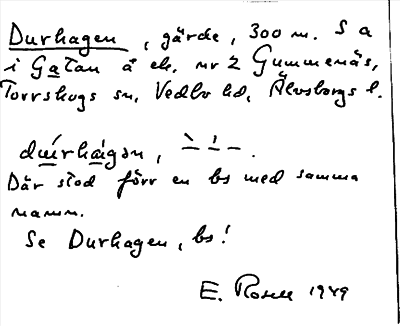 Durhagen, gärde, 300 m. S a
i Gatan å eh. nr 2 Gummenäs,
Torrskogs sn, Vedbo hd, Älvsborgs l.
du̇́rhȧ̀gən, – – – .
Där stod förr en bs med samma
namn.
Se Durhagen, bs!
E. Rosell 1949